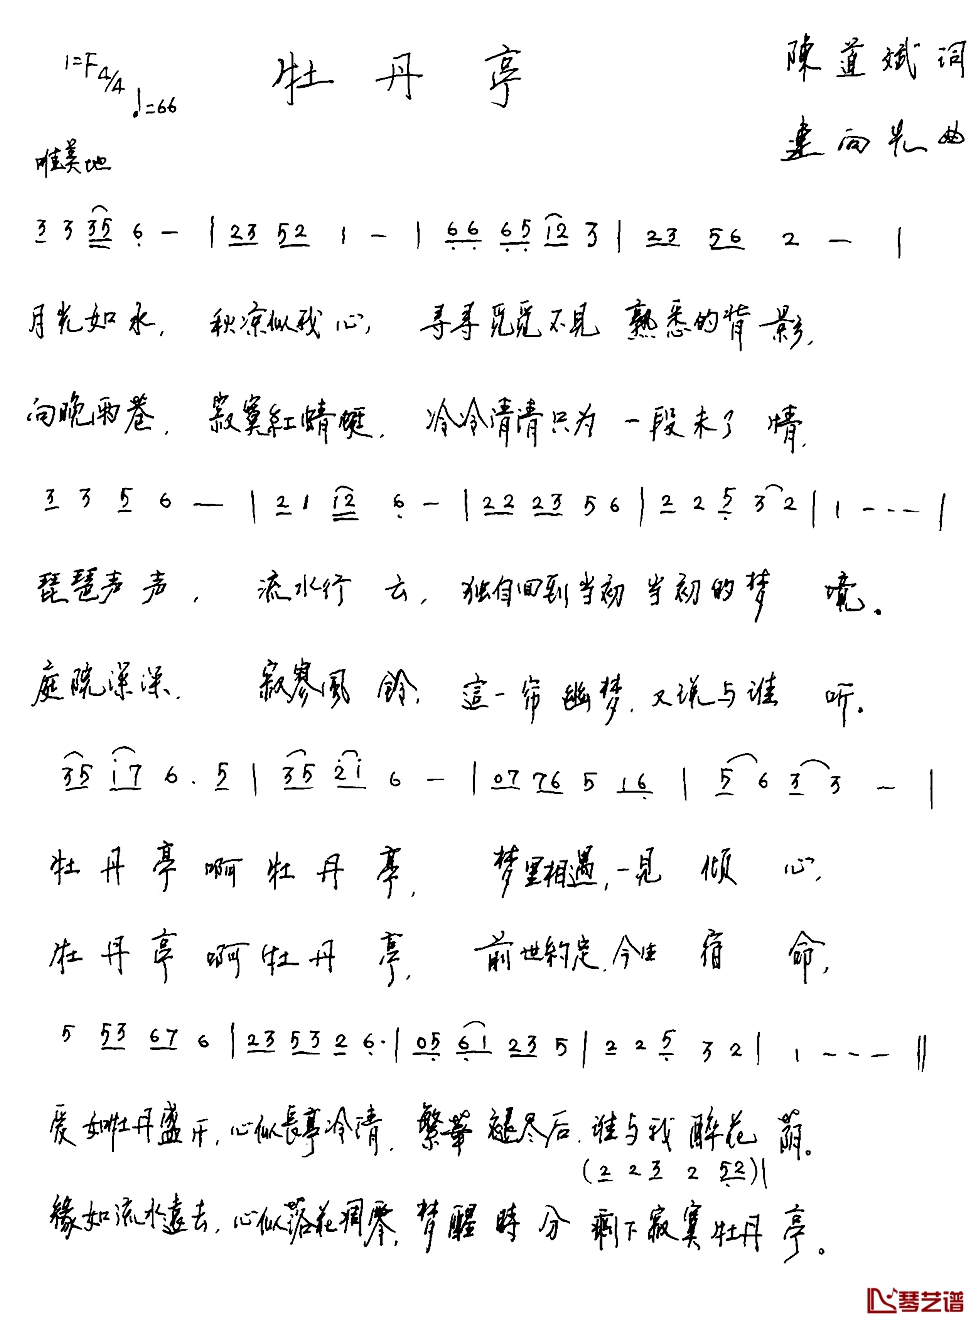 1=F 4/4
♩=66
牡丹亭
陳道斌词
建向光曲
唯美地
3 3 35 6 — | 23 52 1 — | 66 65 12 3 | 23 56 2 — |
月光如水, 秋凉似我心, 寻寻觅觅不见 熟悉的背影,
向晚雨巷, 寂寞紅蜻蜓, 冷冷清清只为 一段未了情,
3 3 5 6 — | 21 12 6 — | 22 23 5 6 | 2 2 5 3 2 | 1 - - - |
琵琶声声, 流水行云, 独自回到当初 当初的梦境。
庭院深深, 寂寥風鈴, 這一帘幽梦, 又说与谁听。
35 i7 6. 5 | 35 2i 6 — | 07 76 5 16 | 5 6 3 3 — |
牡丹亭啊牡丹亭, 梦里相遇,一見傾心,
牡丹亭啊牡丹亭, 前世约定,今生宿命,
5 53 67 6 | 23 53 2 6. | 05 61 23 5 | 2 2 5 3 2 | 1 - - - ||
爱如牡丹盛开,心似長亭冷清, 繁華褪尽后,谁与我醉花荫。
(2 2 3 2 52)|
緣如流水遠去,心似落花凋零,梦醒時分 剩下寂寞牡丹亭。
琴艺谱